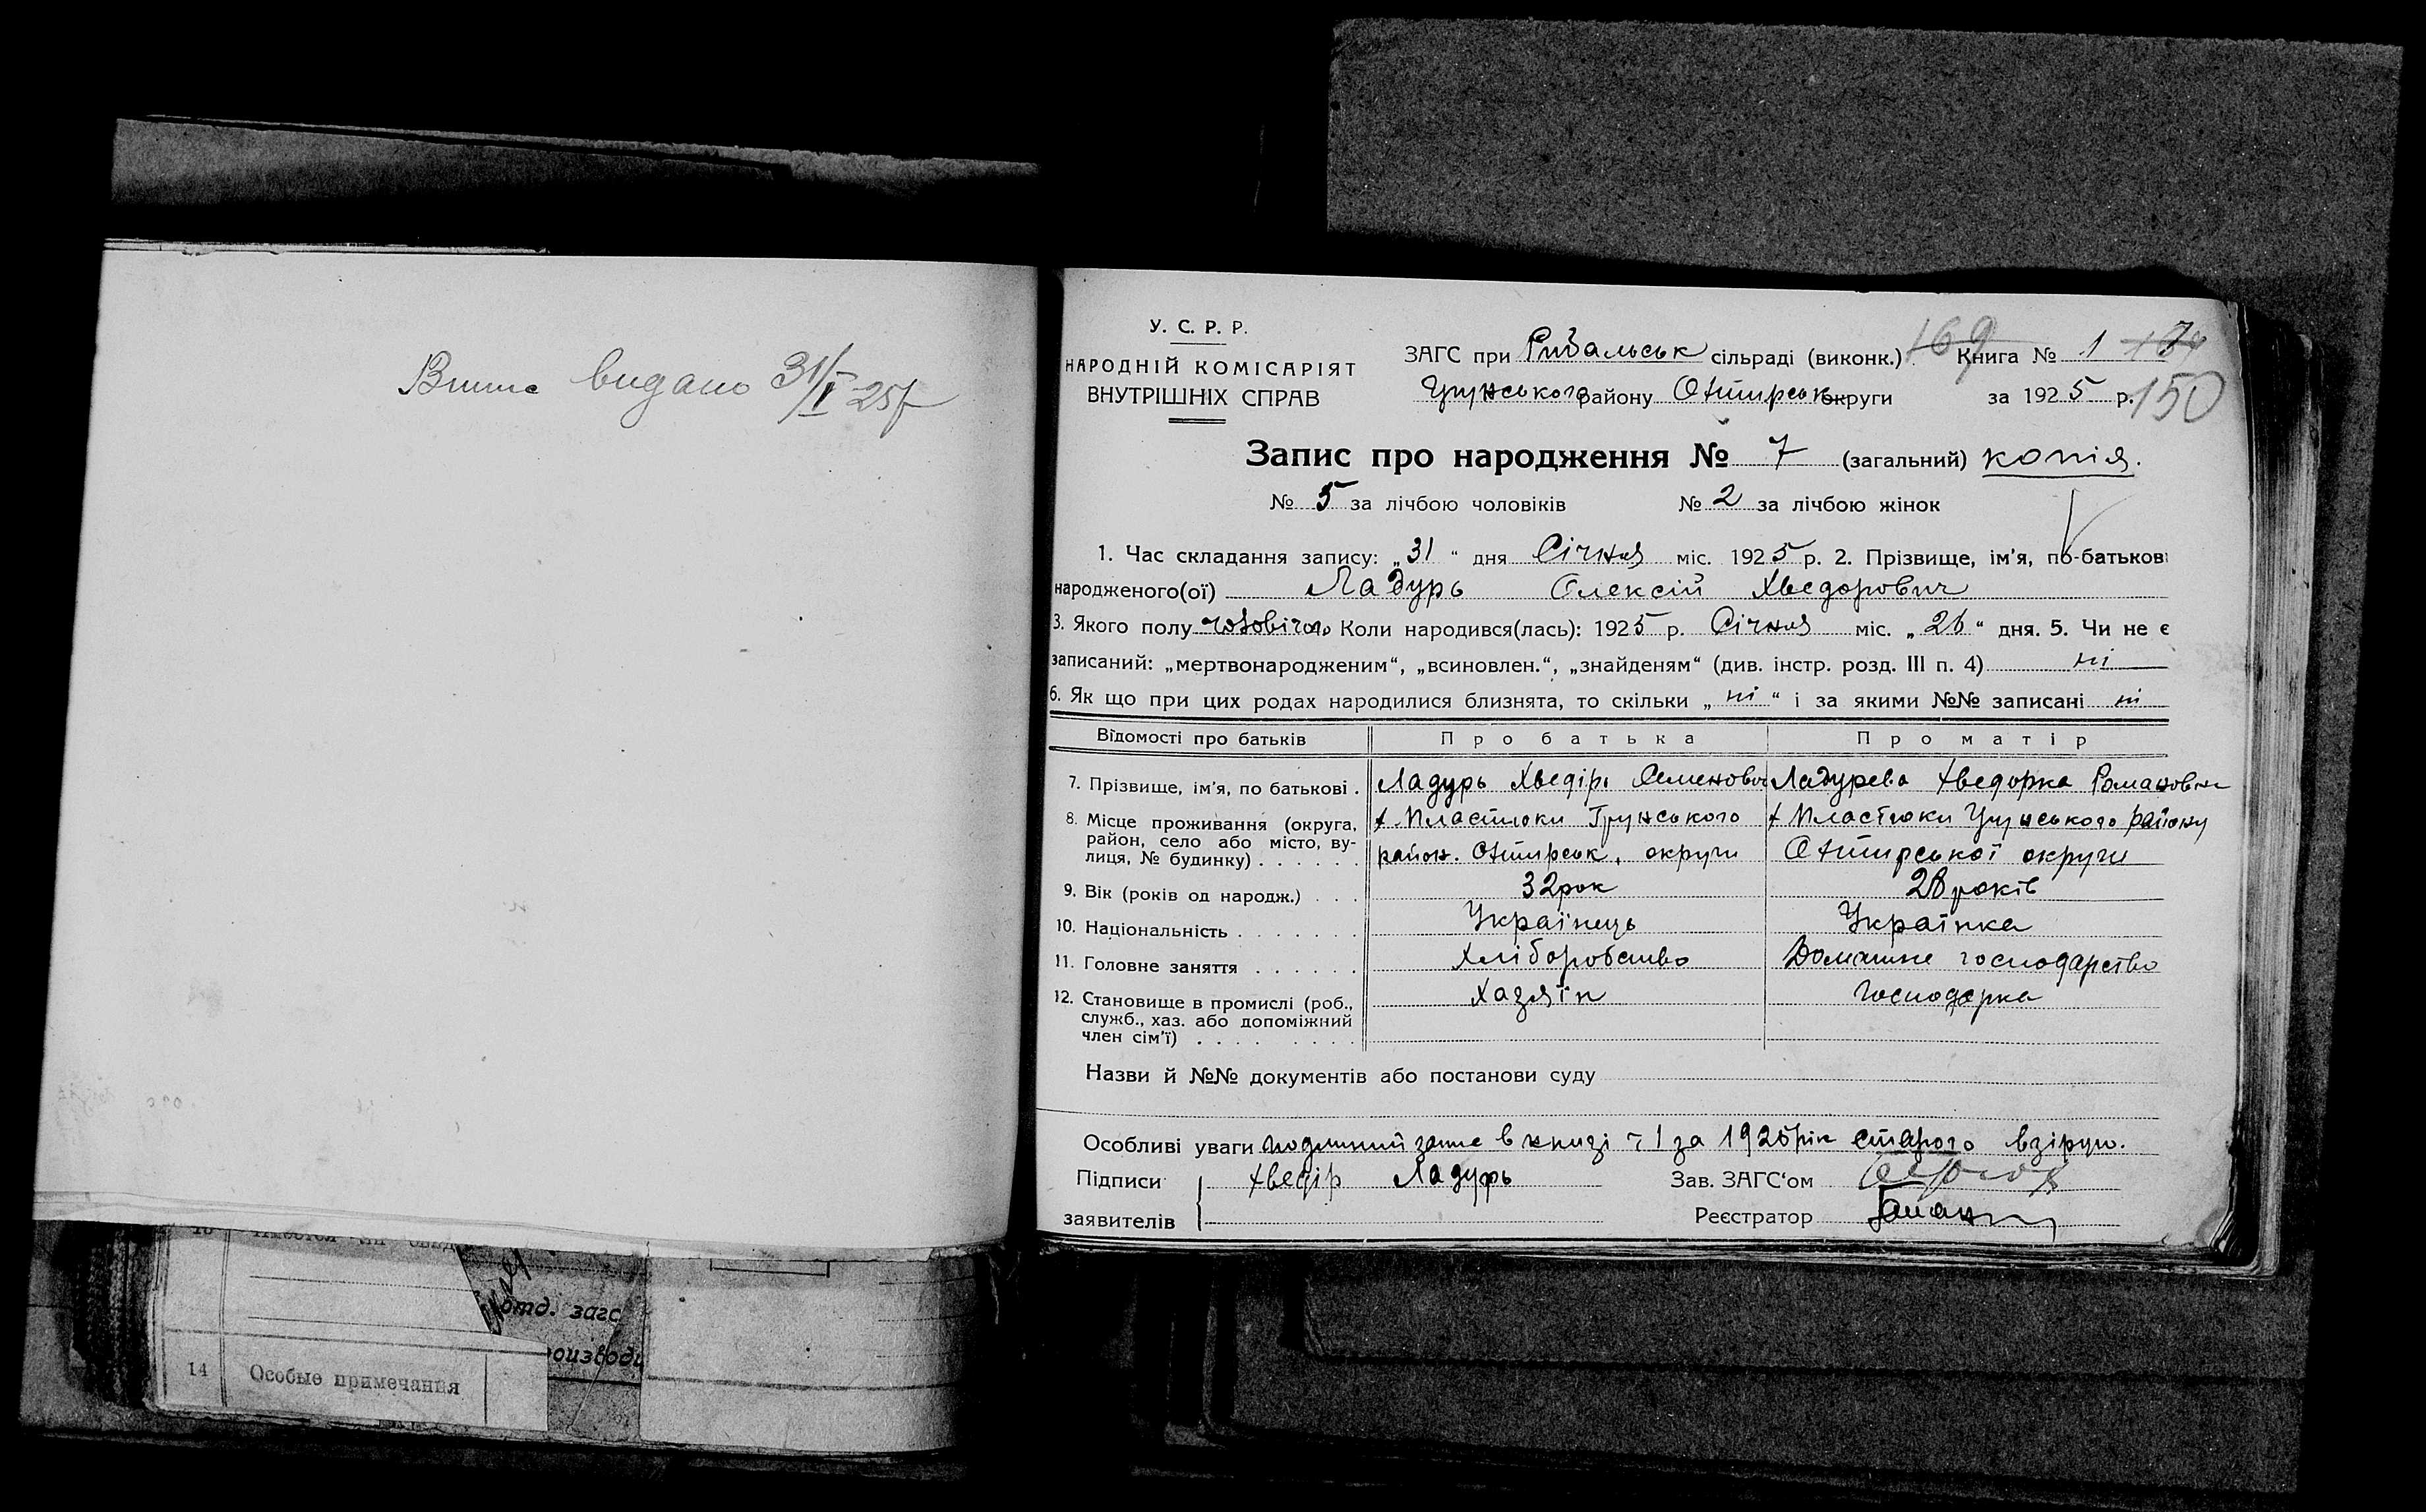 Випис видано 31/I 25р
У. С. Р. Р.
НАРОДНІЙ КОМІСАРІЯТ
ВНУТРІШНІХ СПРАВ
ЗАГС при Рибальськ сільраді (виконк.) 169 Книга № 1
Грунського району Охтирськ округи за 1925 р. 150
Запис про народження № 7 (загальний) копія.
№ 5 за лічбою чоловіків № 2 за лічбою жінок
1. Час складання запису: „31“ дня Січня міс. 1925 р. 2. Прізвище, ім'я, по-батькові
народженого(ої) Ладурь Олексій Хведорович
3. Якого полу чоловічого Коли народився(лась): 1925 р. Січня міс. „26“ дня. 5. Чи не є
записаний: „мертвонародженим“, „всиновлен.“, „знайденям“ (див. інстр. розд. III п. 4) ні
6. Як що при цих родах народилися близнята, то скільки „ні“ і за якими №№ записані ні
Відомості про батьків Про батька Про матір
7. Прізвище, ім'я, по батькові . Ладурь Хведір Семенович Ладурева Хведорка Романовна
8. Місце проживання (округа, район, село або місто, вулиця, № будинку) . . . . . . х Пластюки Грунського х Пластюки Грунського району
район. Охтирськ. округи Охтирської округи
9. Вік (років од народж.) . . . 32 рок 28 років
10. Національність . . . . . . . Українець Українка
11. Головне заняття . . . . . . Хліборобство Домашнє господарство
12. Становище в промислі (роб., служб., хаз. або допоміжний член сім'ї) . . . . . . . . Хазяїн Господарка
Назви й №№ документів або постанови суду
Особливі уваги подлиний запис в книзі ч 1 за 1925 рік старого взірцю.
Підписи Хведір Ладурь Зав. ЗАГС'ом
заявителів Реєстратор
отд. загс
14 Особые примечания